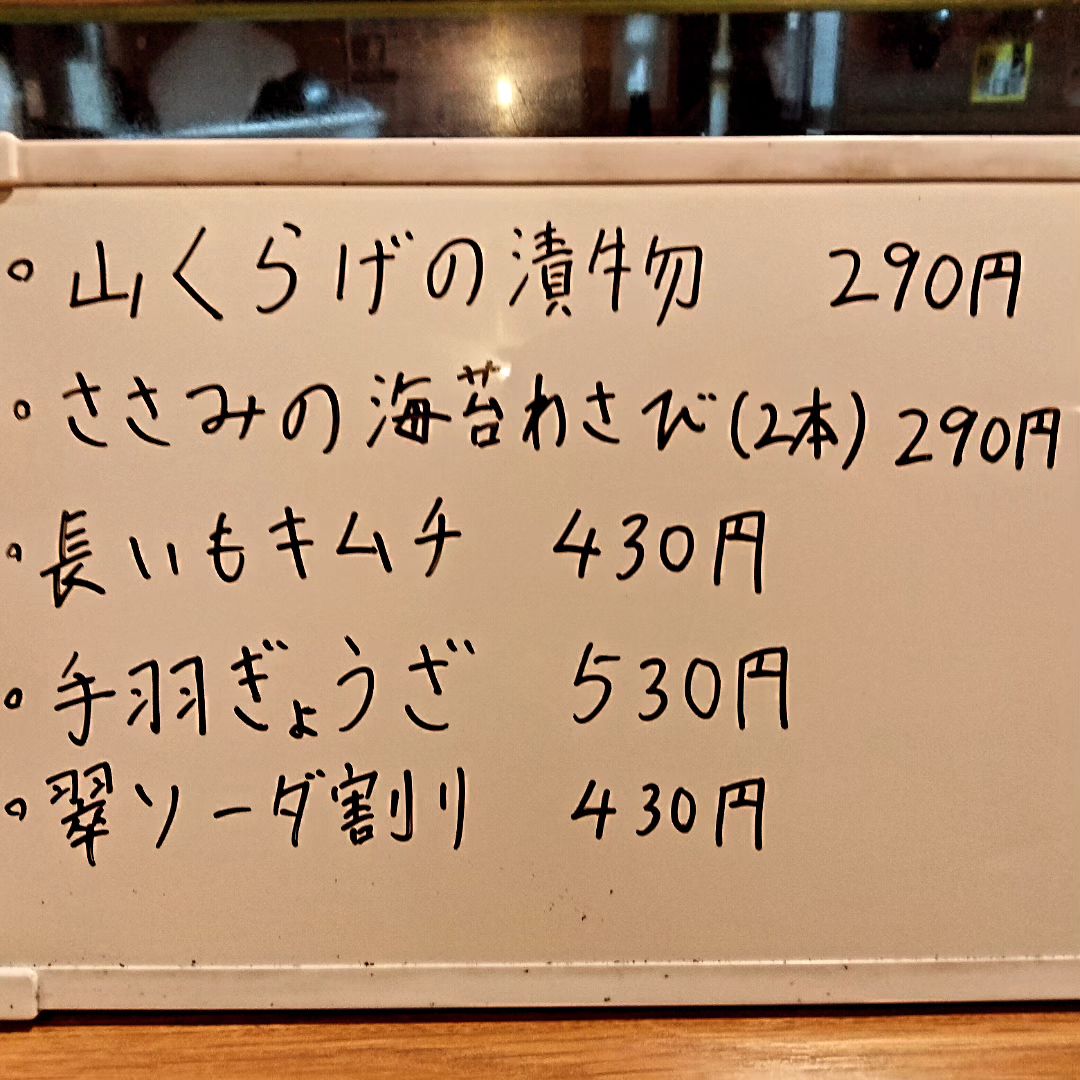 。山くらげの漬物 290円
。ささみの海苔わさび(2本) 290円
。長いもキムチ 430円
。手羽ぎょうざ 530円
。翠ソーダ割り 430円